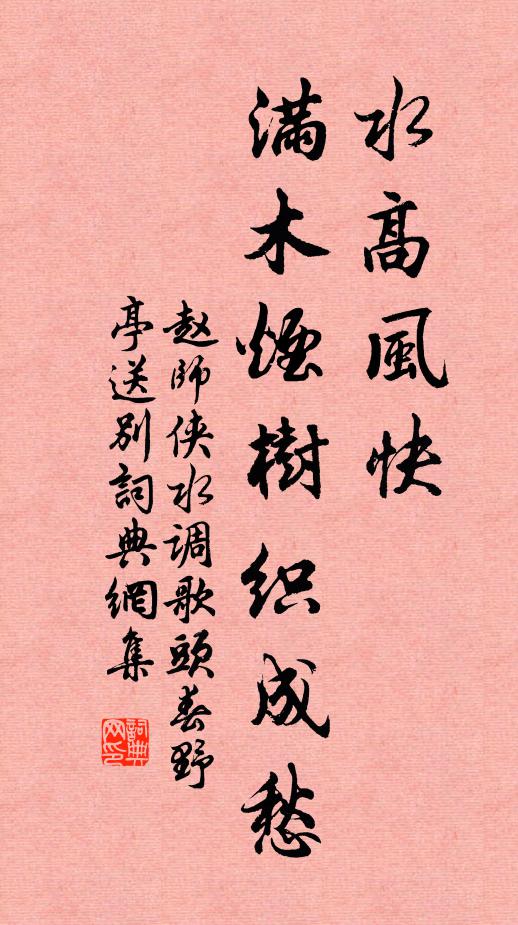 水高風快
滿木煙樹織成愁
赵師侠水调歌頭春野
亭送别詞典網集
詞典
网印